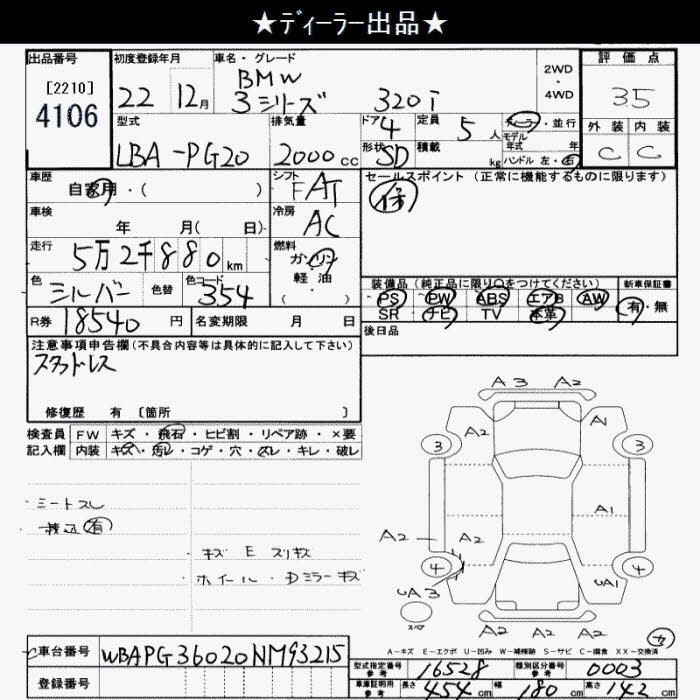 ★ディーラー出品★
出品番号
[2210]
4106
初度登録年月
22 12月
車名・グレード
BMW
3シリーズ 320i
2WD
・
4WD
評価点
3.5
外装 内装
C C
型式
LBA-PG20
排気量
2000cc
ドア 4
形状 SD
定員 5人
積載 kg
ディーラー・並行
モデル年式 年
ハンドル 左・右
車歴
自家用・( )
車検
年 月( 日)
走行
5万2千880km
色
シルバー
色替
色コード
354
シフト
FAT
冷房
AC
燃料
ガソリン
軽・油
( ・ )
セールスポイント (正常に機能するものに限ります)
装備品 (純正品に限り○をつけてください)
PS PW ABS エアB AW
SR ナビ TV 本革
新車保証書
有・無
後日品
R券 18540円
名変期限 月 日
注意事項申告欄(不具合内容等は具体的に記入して下さい)
スタッドレス
修復歴 有 〔箇所 〕
検査員記入欄
FW キズ・飛石・ヒビ割・リペア跡・×要
内装 キズ・汚レ・コゲ・穴・スレ・キレ・破レ
シートスレ
キズ E スリキズ
ホイール・Dミラーキズ
A3 A2
A2 A1
3 3
A1
A2 A2
4 4
UA3 UA1
スペア
A2 A2 A2
A-キズ E-エクボ U-凹み W-補修跡 S-サビ C-腐食 XX-交換済
車台番号 WBAPG36020NM93215
登録番号
型式指定番号 参考 16528
類別区分番号 参考 0003
車庫証明用 参考 長さ 454cm 幅 180cm 高さ 142cm